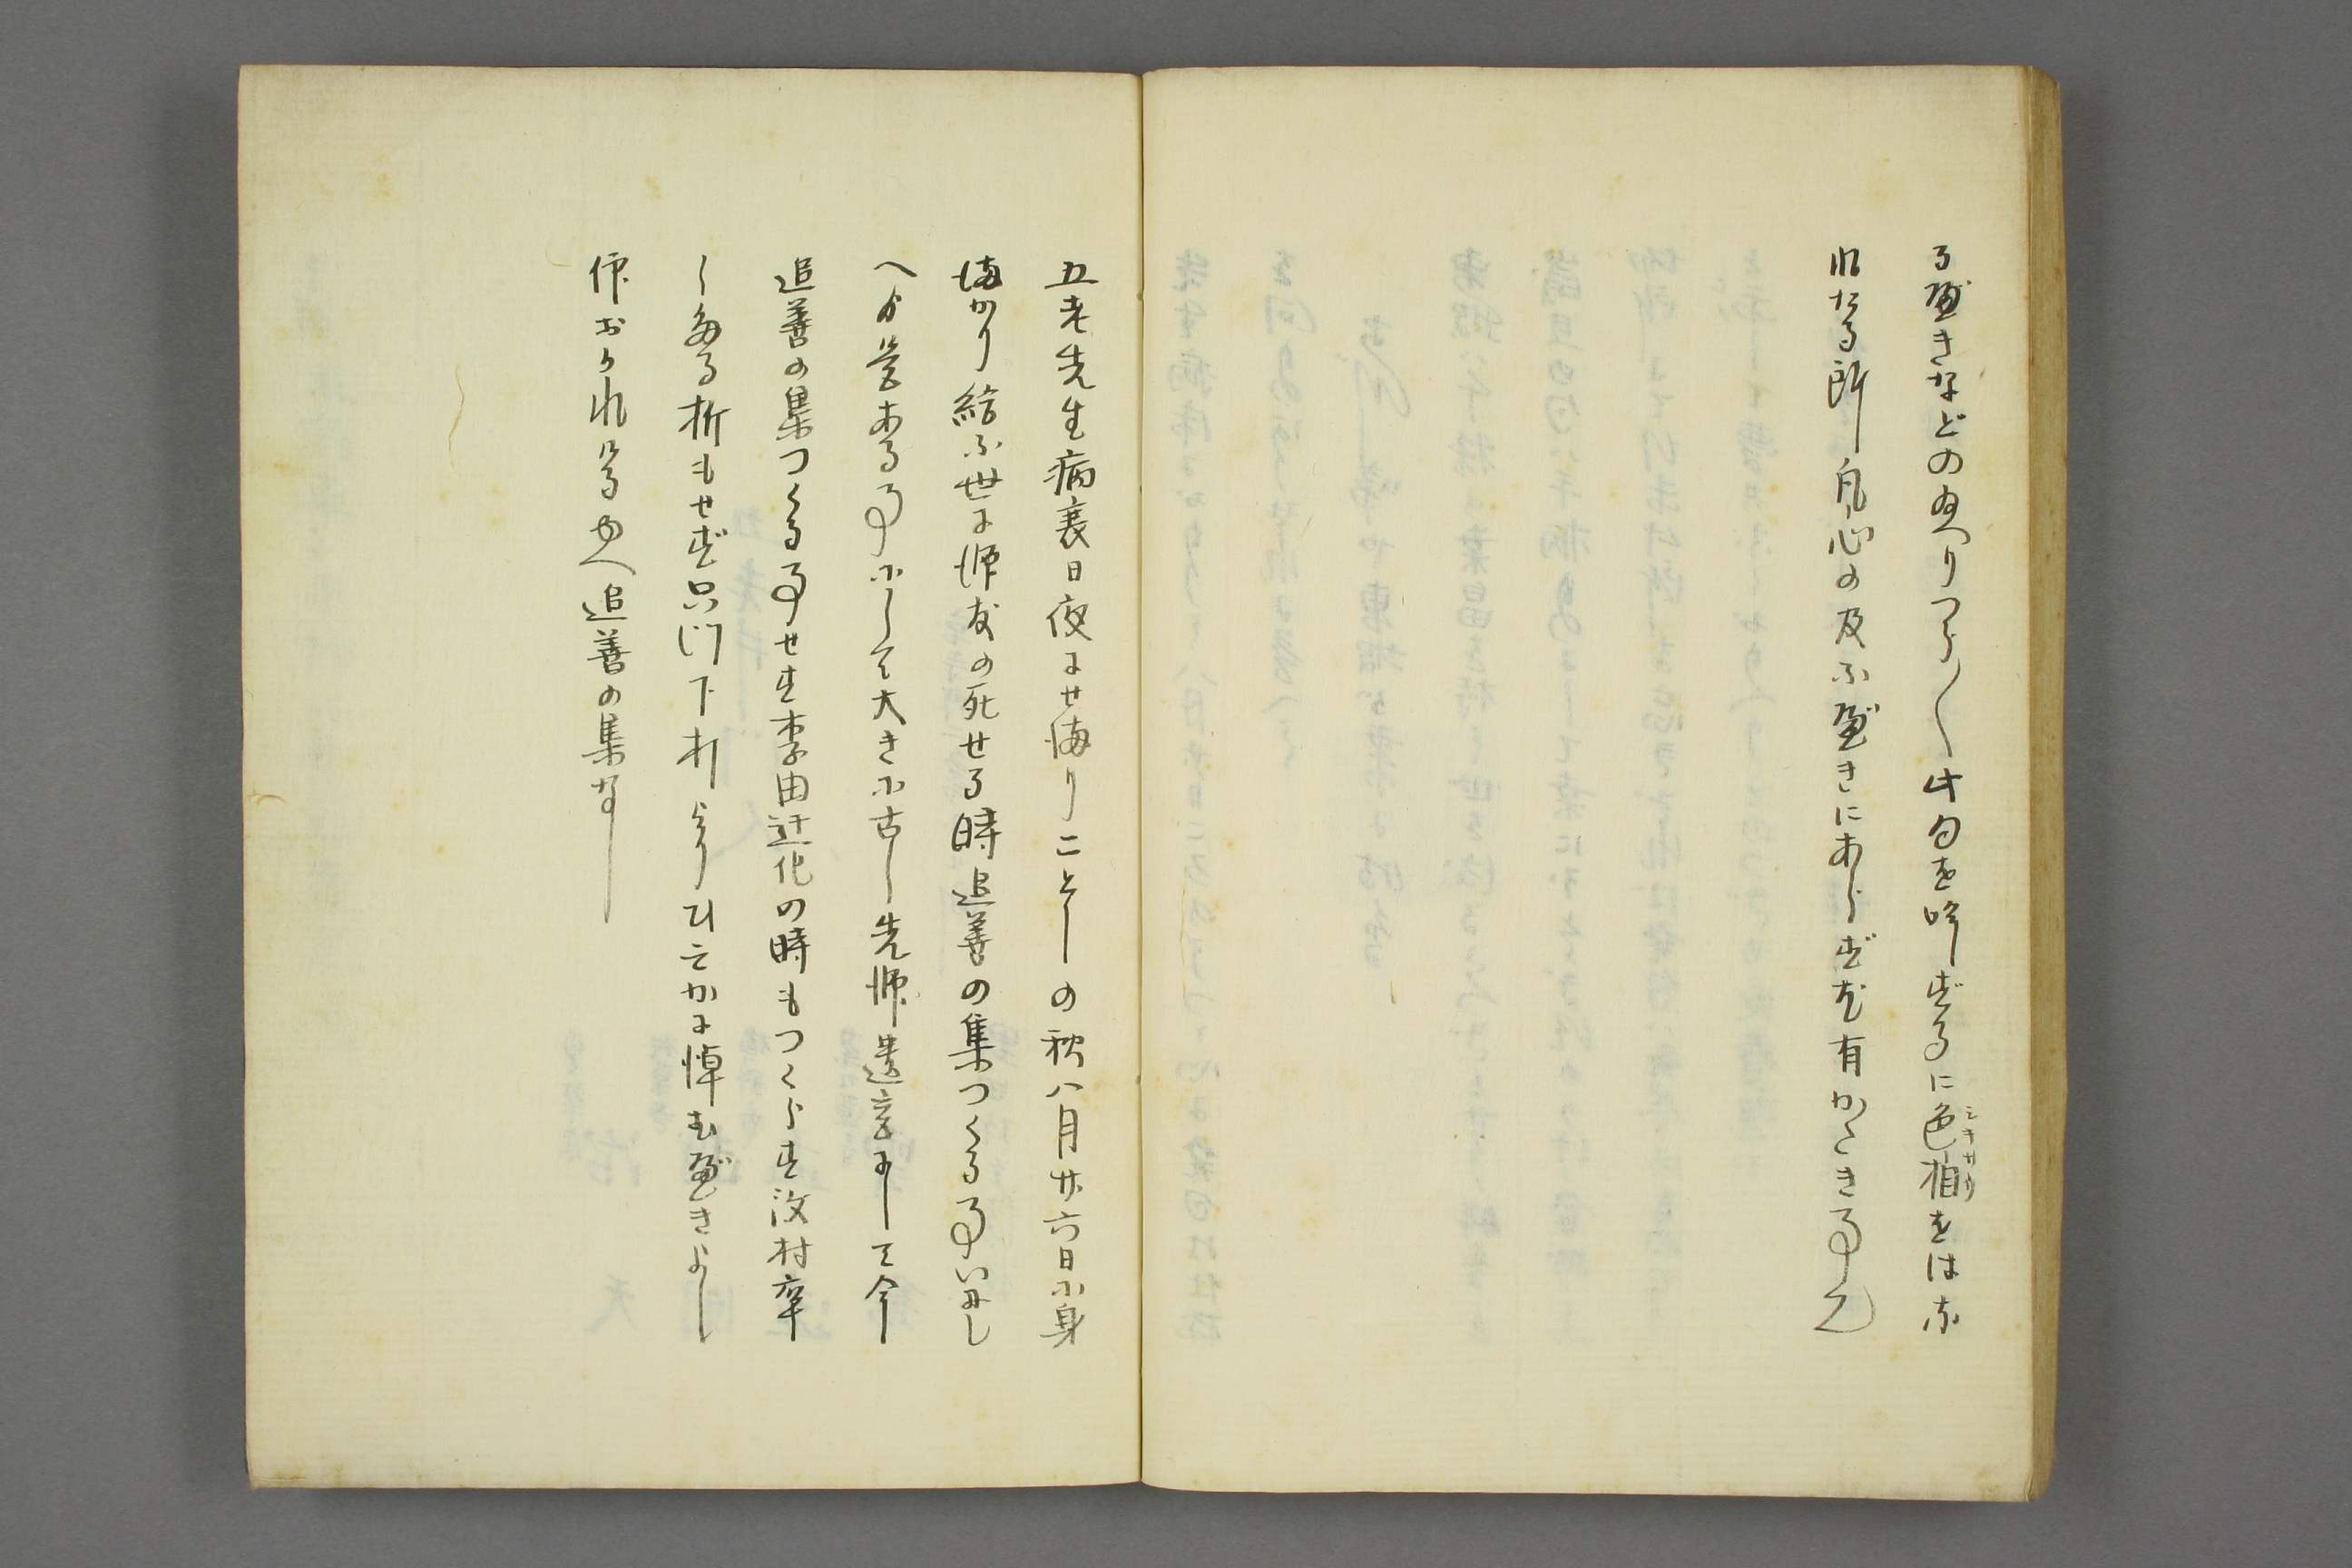 る、べきなどのゑへりつら〱此句を吟ずるに色相をはな
れたる所凡心の及ふべきにあらずだ有かたき事也
五老先生病衰日夜にせ海りことしの秋八月廿六日に身
海かり給ふ世に師友の死せる時追善の集つくる事いにし
へより営ある事にして大きに古し先師遺言にして今
追善の集つくる事せす李由迁化の時もつくらす汶村卒
しぬる折もせず只門下打よりひそかに悼むべきよし
作おかれけるゆへ追善の集なし